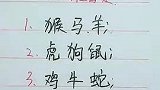 1. 猴马羊;
2. 虎狗鼠;
3. 鸡牛蛇;